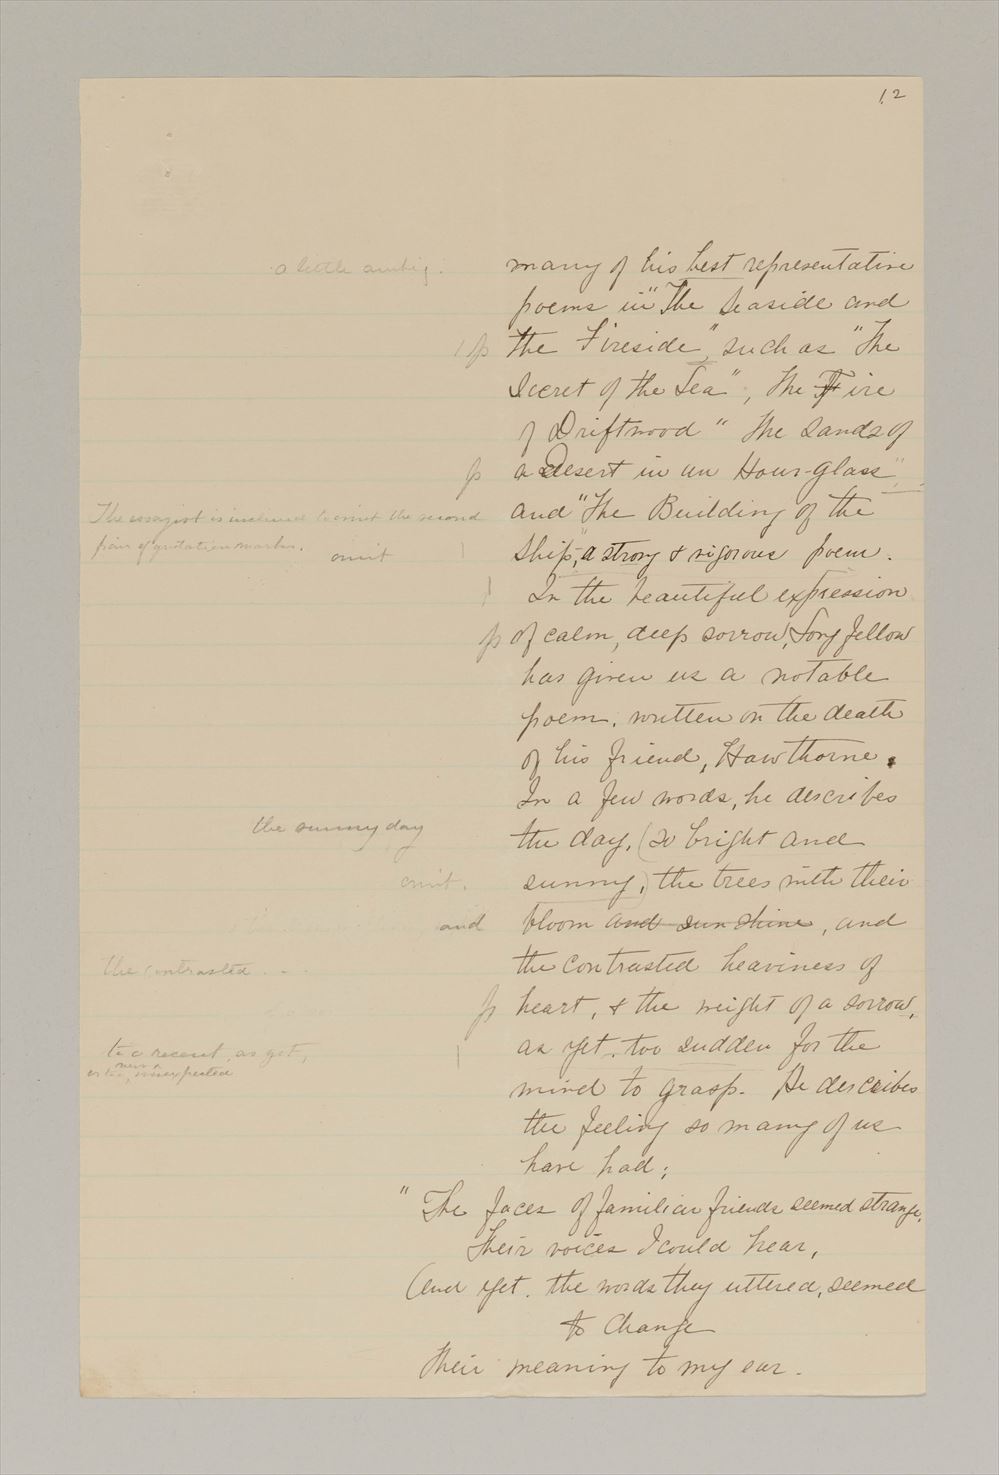 12
a little ambig.
many of his best representative
poems in "The Seaside and
p the Fireside", such as "The
Secret of the Sea", The Fire
of Driftwood" The Sands of
p a Desert in an Hour-glass",
and "The Building of the
The essayist is inclined to omit the second
pair of quotation marks.
omit
Ship", a strong & vigorous poem.
In the beautiful expression
p of calm, deep sorrow, Longfellow
has given us a notable
poem, written on the death
of his friend, Hawthorne.
In a few words, he describes
the sunny day
the day, (so bright and
omit.
sunny,) the trees with their
and
bloom and sunshine, and
the contrasted ...
the contrasted heaviness of
p heart, & the weight of a sorrow,
as yet, too sudden for the
too recent, as yet,
new &
or too unexpected
mind to grasp. He describes
the feeling so many of us
have had;
"The faces of familiar friends seemed strange,
Their voices I could hear,
And yet, the words they uttered, seemed
to change
Their meaning to my ear.